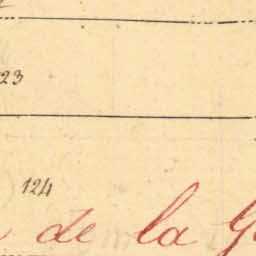 23
124
de la